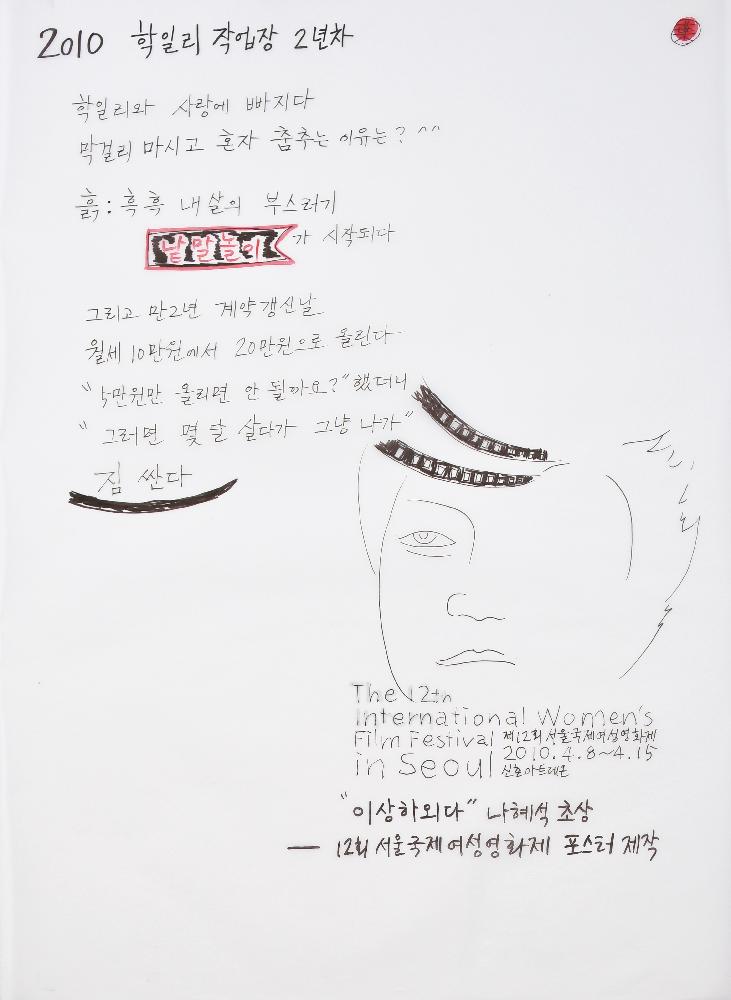 2010 학일리 작업장 2년차
학일리와 사랑에 빠지다
막걸리 마시고 혼자 춤추는 이유는? ^^
흙: 흑흑 내 살의 부스러기
낱말놀이가 시작되다
그리고 만2년 계약갱신날
월세 10만원에서 20만원으로 올린다
"5만원만 올리면 안 될까요?" 했더니
"그러면 몇 달 살다가 그냥 나가"
짐 싼다
The 12th
International Women's
Film Festival 제12회 서울국제여성영화제
in Seoul 2010.4.8~4.15
신촌아트레온
"이상하외다" 나혜석 초상
— 12회 서울국제여성영화제 포스터 제작